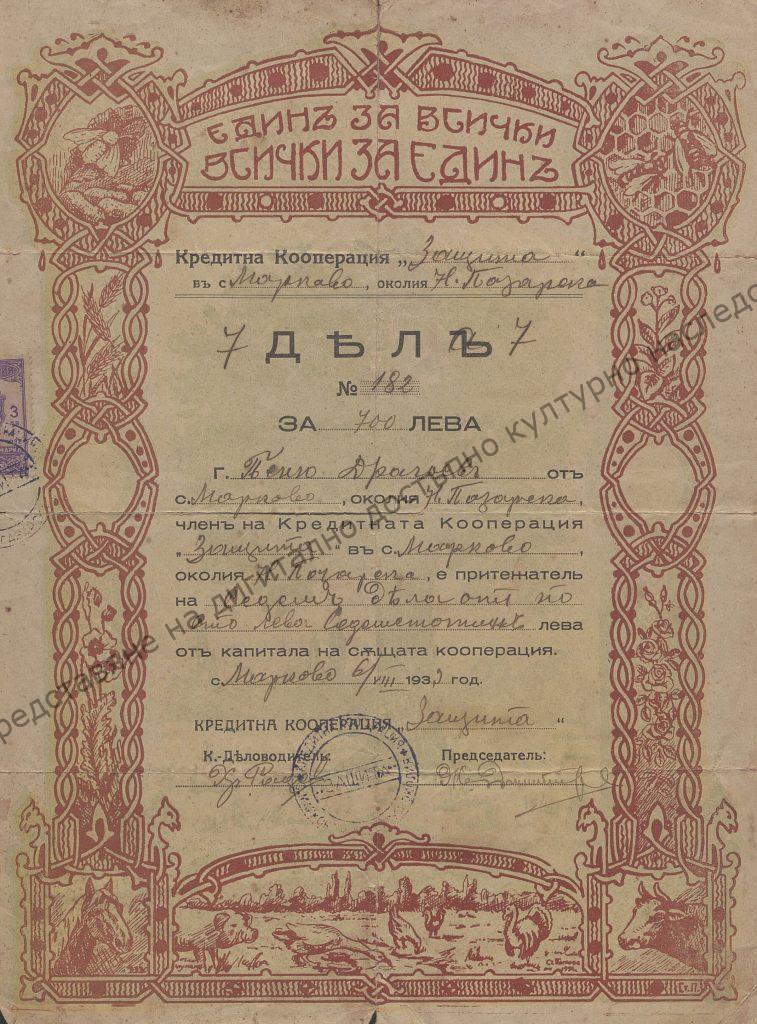 ЕДИНЪ ЗА ВСИЧКИ
ВСИЧКИ ЗА ЕДИНЪ
Кредитна Кооперация „Защита“
въ с. Марково, околия Н. Пазарска
7 ДѢЛЪ 7
№ 182
ЗА 700 ЛЕВА
Г. Пеню Драгоев отъ
с. Марково, околия Н. Пазарска,
членъ на Кредитната Кооперация
„Защита“ въ с. Марково,
околия Н. Пазарска, е притежатель
на седемь дѣла от по
сто лева Седемстотинъ лева
отъ капитала на сѫщата кооперация.
с. Марково 6/VIII 1932 год.
КРЕДИТНА КООПЕРАЦИЯ „Защита“
К.-Дѣловодитель: Председатель:
Хр.
ЗАЩИТА
3
Ст.П.
представяне на дигитално достъпно културно наследс